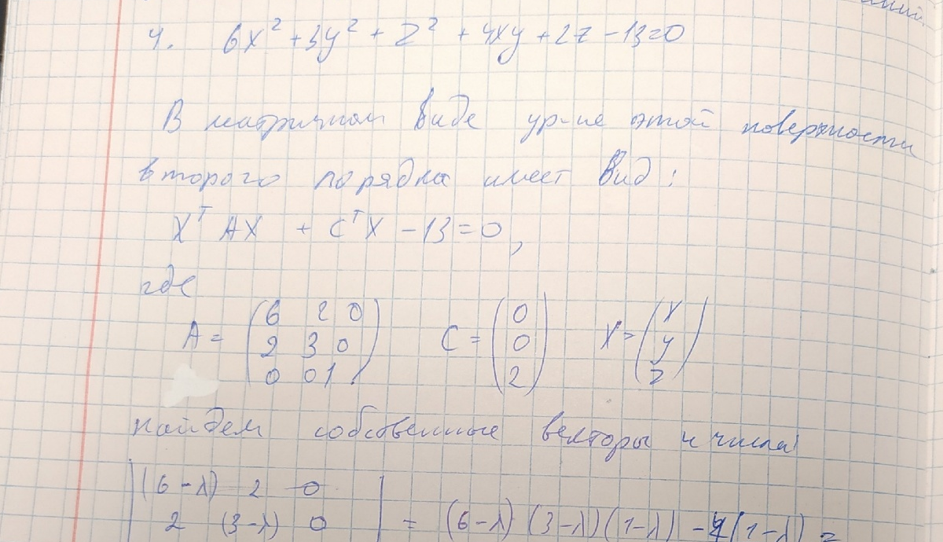 4. 6x² + 3y² + z² + 4xy + 2z - 13 = 0
В матричном виде ур-ие этой поверхности
второго порядка имеет вид:
X^T AX + C^T X - 13 = 0,
где
A = (6 2 0; 2 3 0; 0 0 1) C = (0; 0; 2) X = (x; y; z)
найдем собственные векторы и числа
|(6-λ) 2 0
2 (3-λ) 0| = (6-λ)(3-λ)(1-λ) - 4(1-λ) =